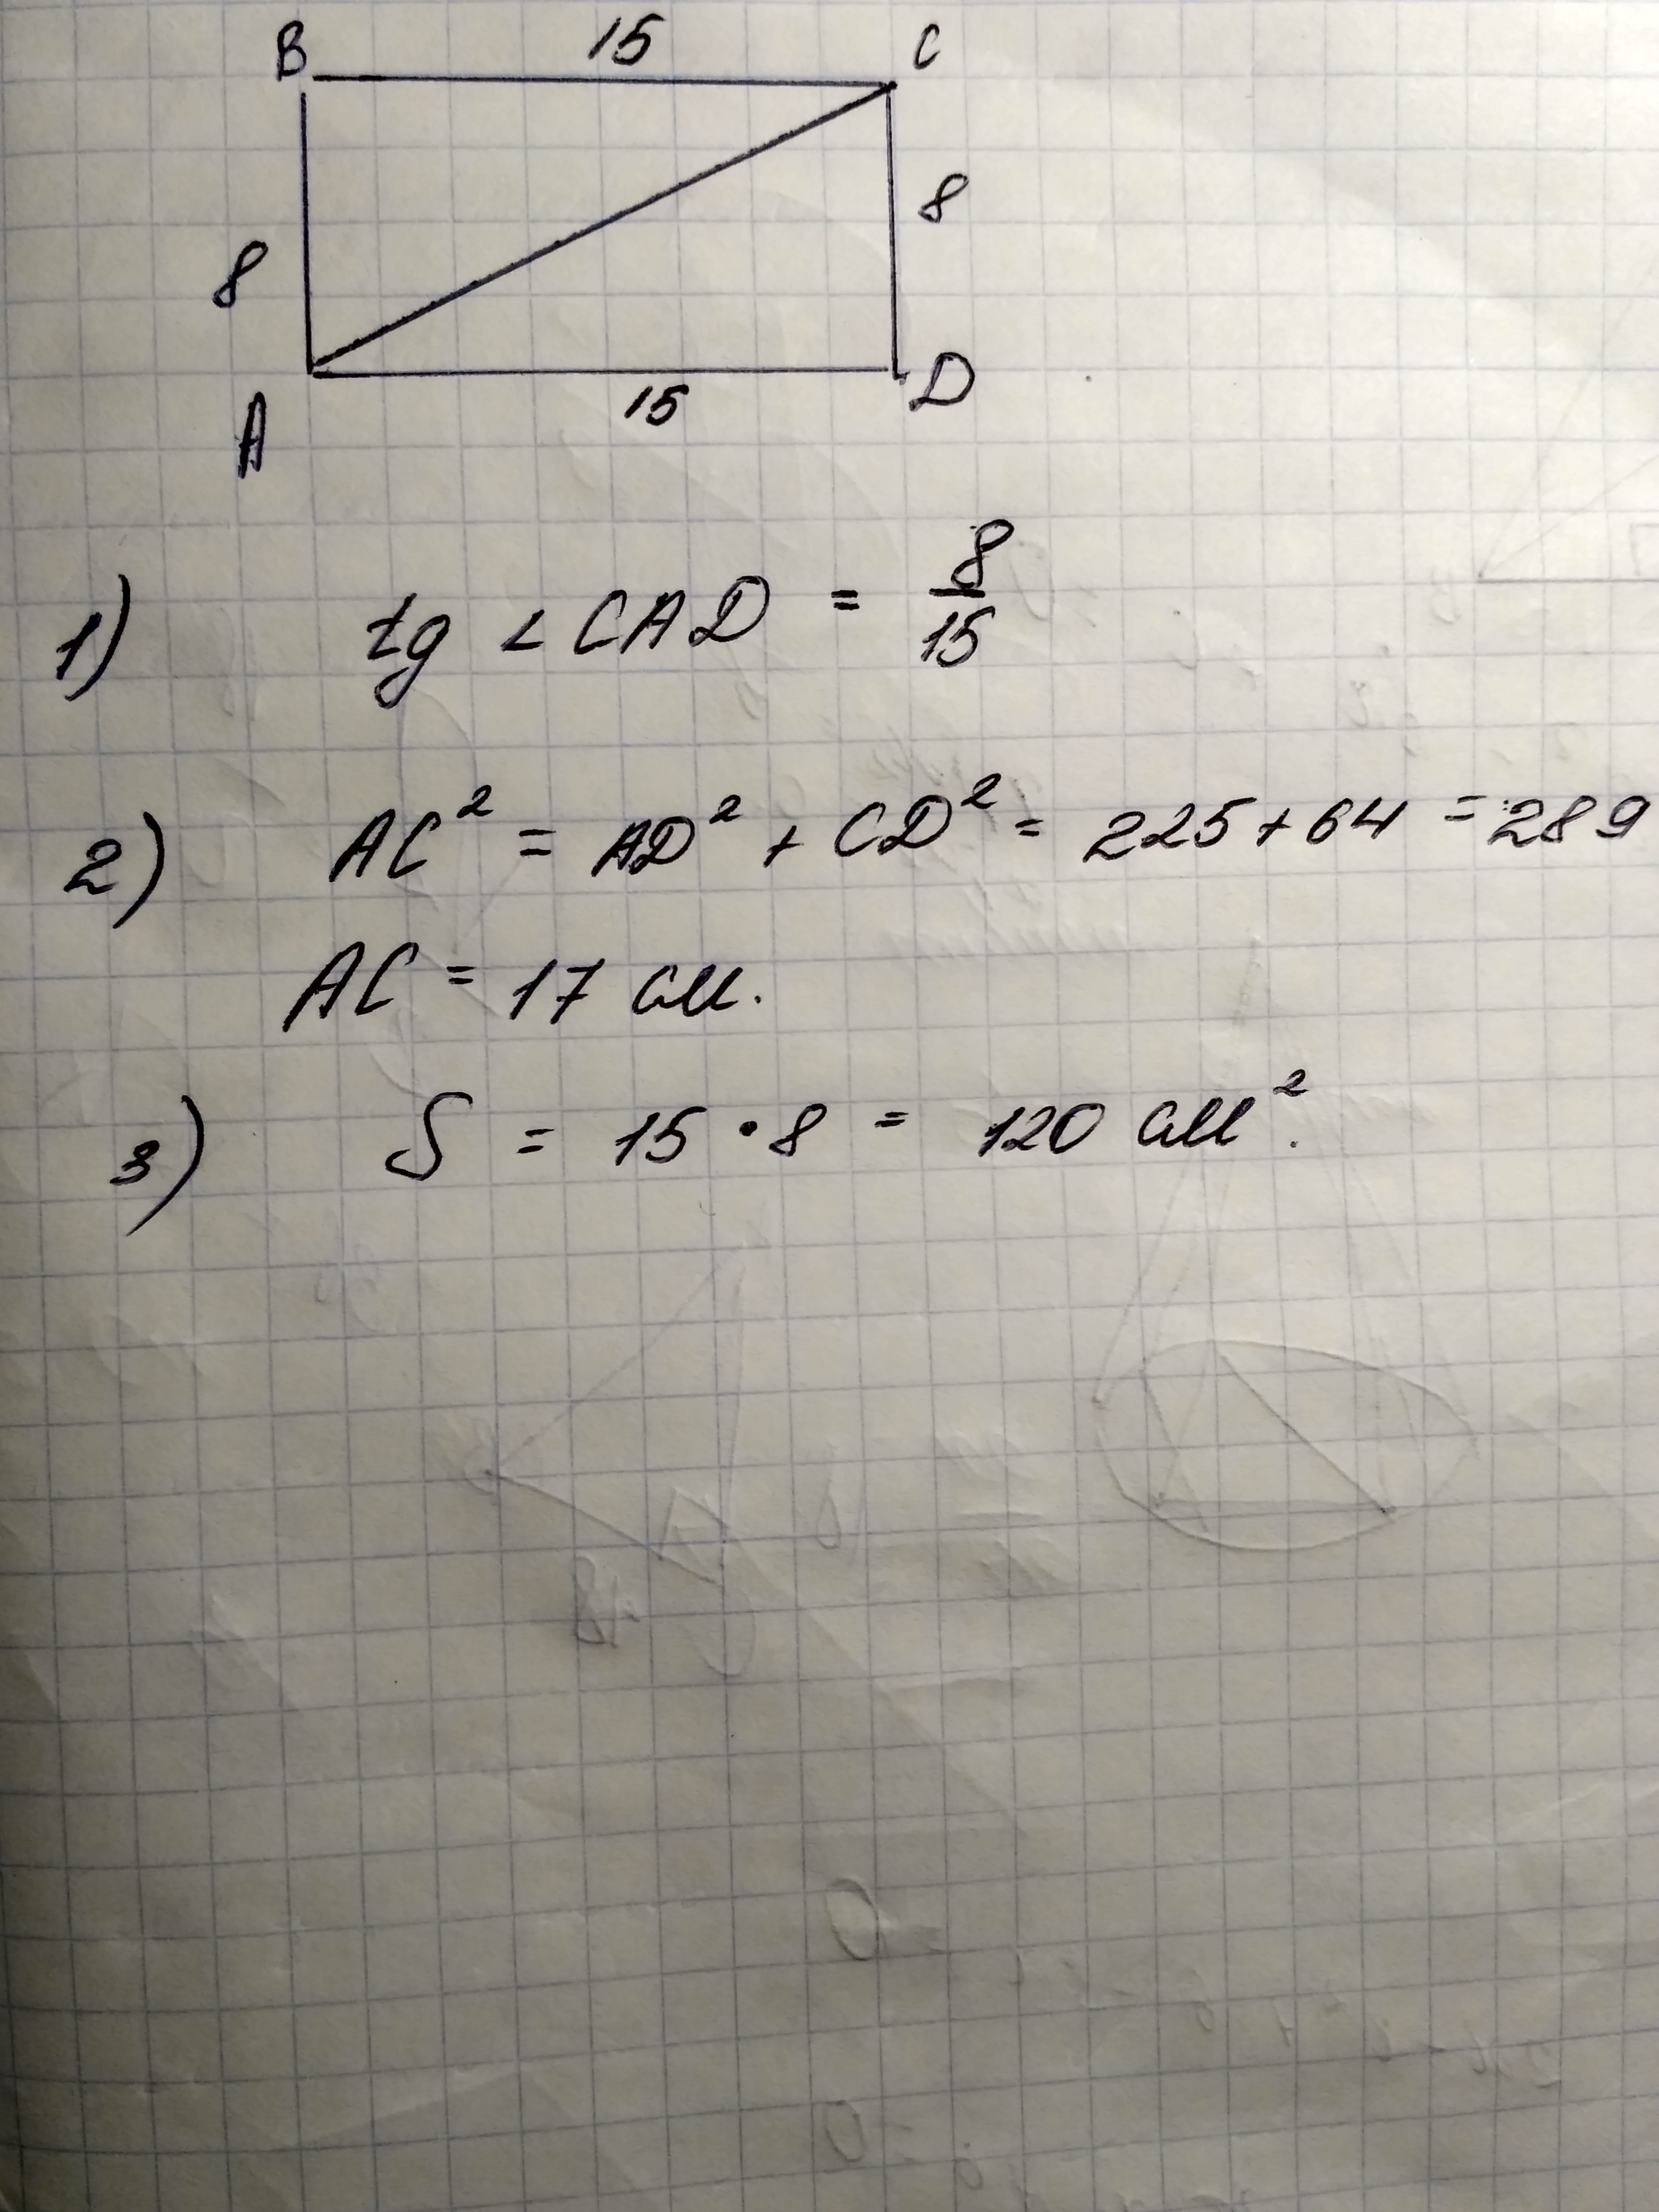 B 15 C
8
8
A 15 D
1) tg < CAD = 8/15
2) AC² = AD² + CD² = 225 + 64 = 289
AC = 17 см.
3) S = 15 • 8 = 120 см².